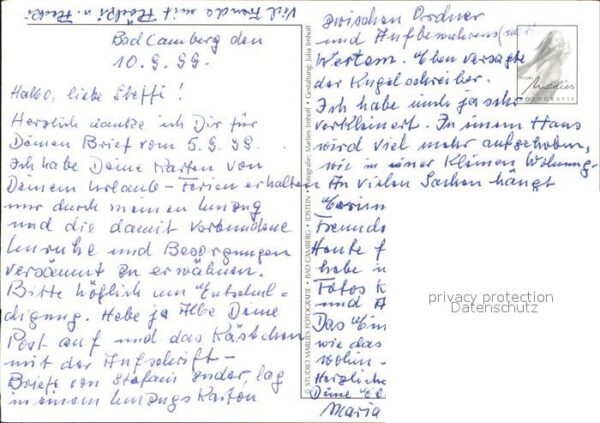 Viel Freude mit
Bad Camberg den
10.9.99.
Hallo, liebe Steffi!
Herzlich danke ich Dir für
Deinen Brief vom 5.9.99.
Ich habe Deine Karten von
Deinem Urlaub - Ferien erhalten
nur durch meinen Umzug
und die damit verbundene
Unruhe und Besorgungen
versäumt zu erwähnen.
Bitte höflich um Entschul-
digung. Hebe ja Alle Deine
Post auf und das Kästchen
mit der Aufschrift -
Briefe von Stefanie lag
in einem Umzugs Karton
© STUDIO MARLIES FOTOGRAFIE • BAD CAMBERG • IDSTEIN Fotografie: Marlies Imhoff • Gestaltung: Julia Imhoff
zwischen Ordner
und Aufbewahrens
Wertem. Eben versagte
der Kugelschreiber.
Ich habe mich ja sehr
verkleinert. In einem Haus
wird viel mehr aufgehoben,
wie in einer kleinen Wohnung.
An vielen Sachen hängt
Freunde
Heute
habe
Fotos
und
Das
wie das
wohn-
Herzliche
Deine
Maria
STUDIO
Marlies
FOTOGRAFIE
privacy protection
Datenschutz